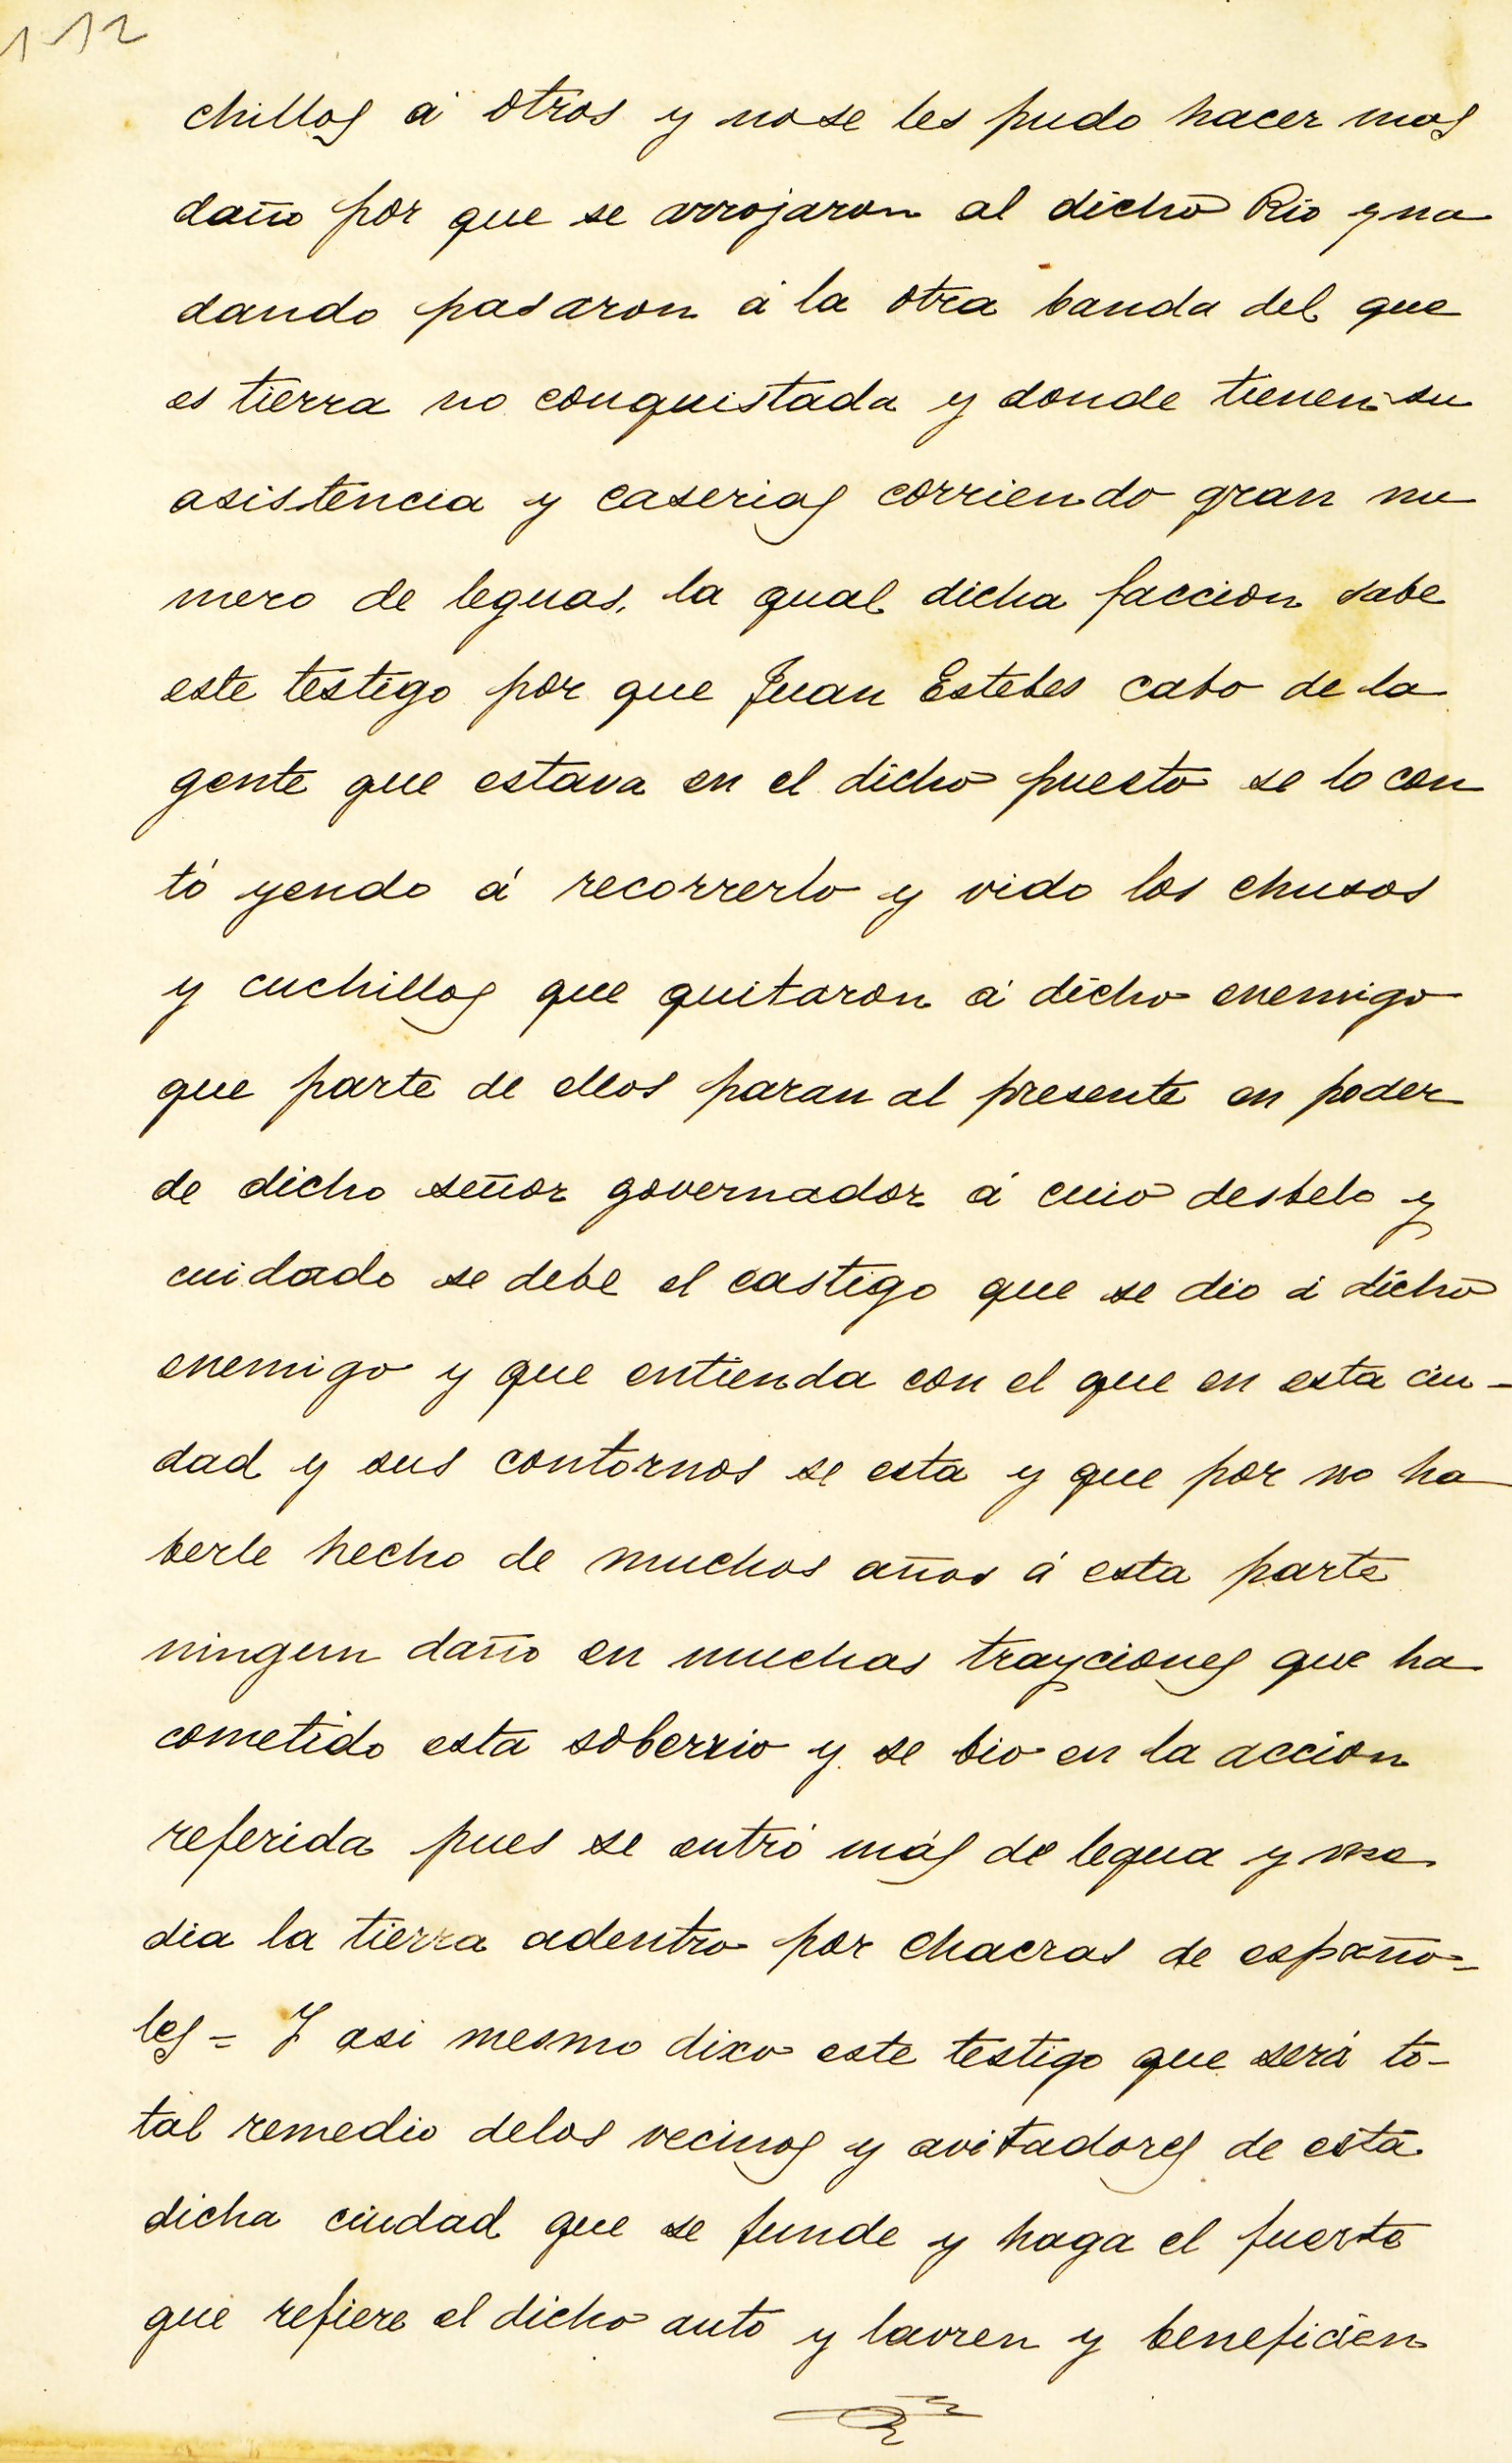 112
chillos á otros y nose les pudo hacer mas
daño por que se arrojaron al dicho Rio y na
dando pasaron á la otra banda del que
es tierra no conquistada y donde tienen su
asistencia y caserias corriendo gran nu
mero de leguas, la qual dicha faccion sabe
este testigo por que Juan Estebes cabo de la
gente que estava en el dicho puesto se lo con
tó yendo á recorrerlo y vido los chusos
y cuchillos que quitaron á dicho enemigo
que parte de ellos paran al presente en poder
de dicho señor governador á cuio desbelo y
cuidado se debe el castigo que se dio á dicho
enemigo y que entienda con el que en esta ciu-
dad y sus contornos se esta y que por no ha
berle hecho de muchos años á esta parte
ningun daño en muchas trayciones que ha
cometido esta soberxio y se bio en la accion
referida pues se entró más de legua y me
dia la tierra adentro por chacras de españo-
les = Y asi mesmo dixo este testigo que será to-
tal remedio delos vecinos y avitadores de esta
dicha ciudad que se funde y haga el fuerte
que refiere el dicho auto y lavren y beneficien